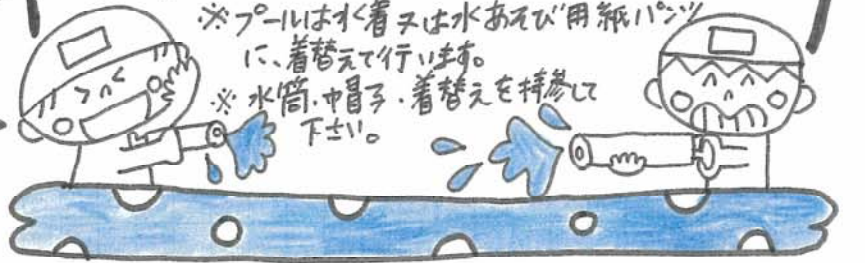 ※プールは水着又は水あそび用紙パンツ
に、着替えて行います。
※ 水筒・帽子・着替えを持参して
下さい。